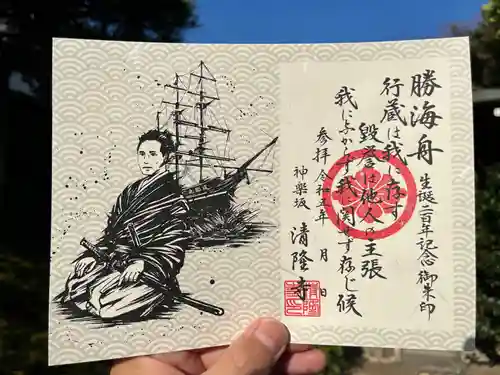 勝海舟
生誕二百年記念 御朱印
行蔵は我に存す
毀誉は他人の主張
我に与からず我に関せず存じ候
参拝 令和五年 月 日
神楽坂 清隆寺